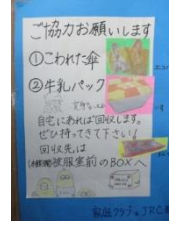 ご協力お願いします
①こわれた傘
②牛乳パック
自宅にあれば回収します。
ぜひ持ってきて下さい!
回収先は
被服室前のBOXへ
クラブ&JRC